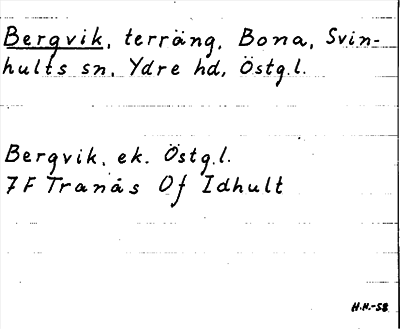 Bergvik, terräng, Bona, Svin-
hults sn, Ydre hd, Östg.l.
Bergvik, ek. Östg.l.
7F Tranås Of Idhult
H.H.-58